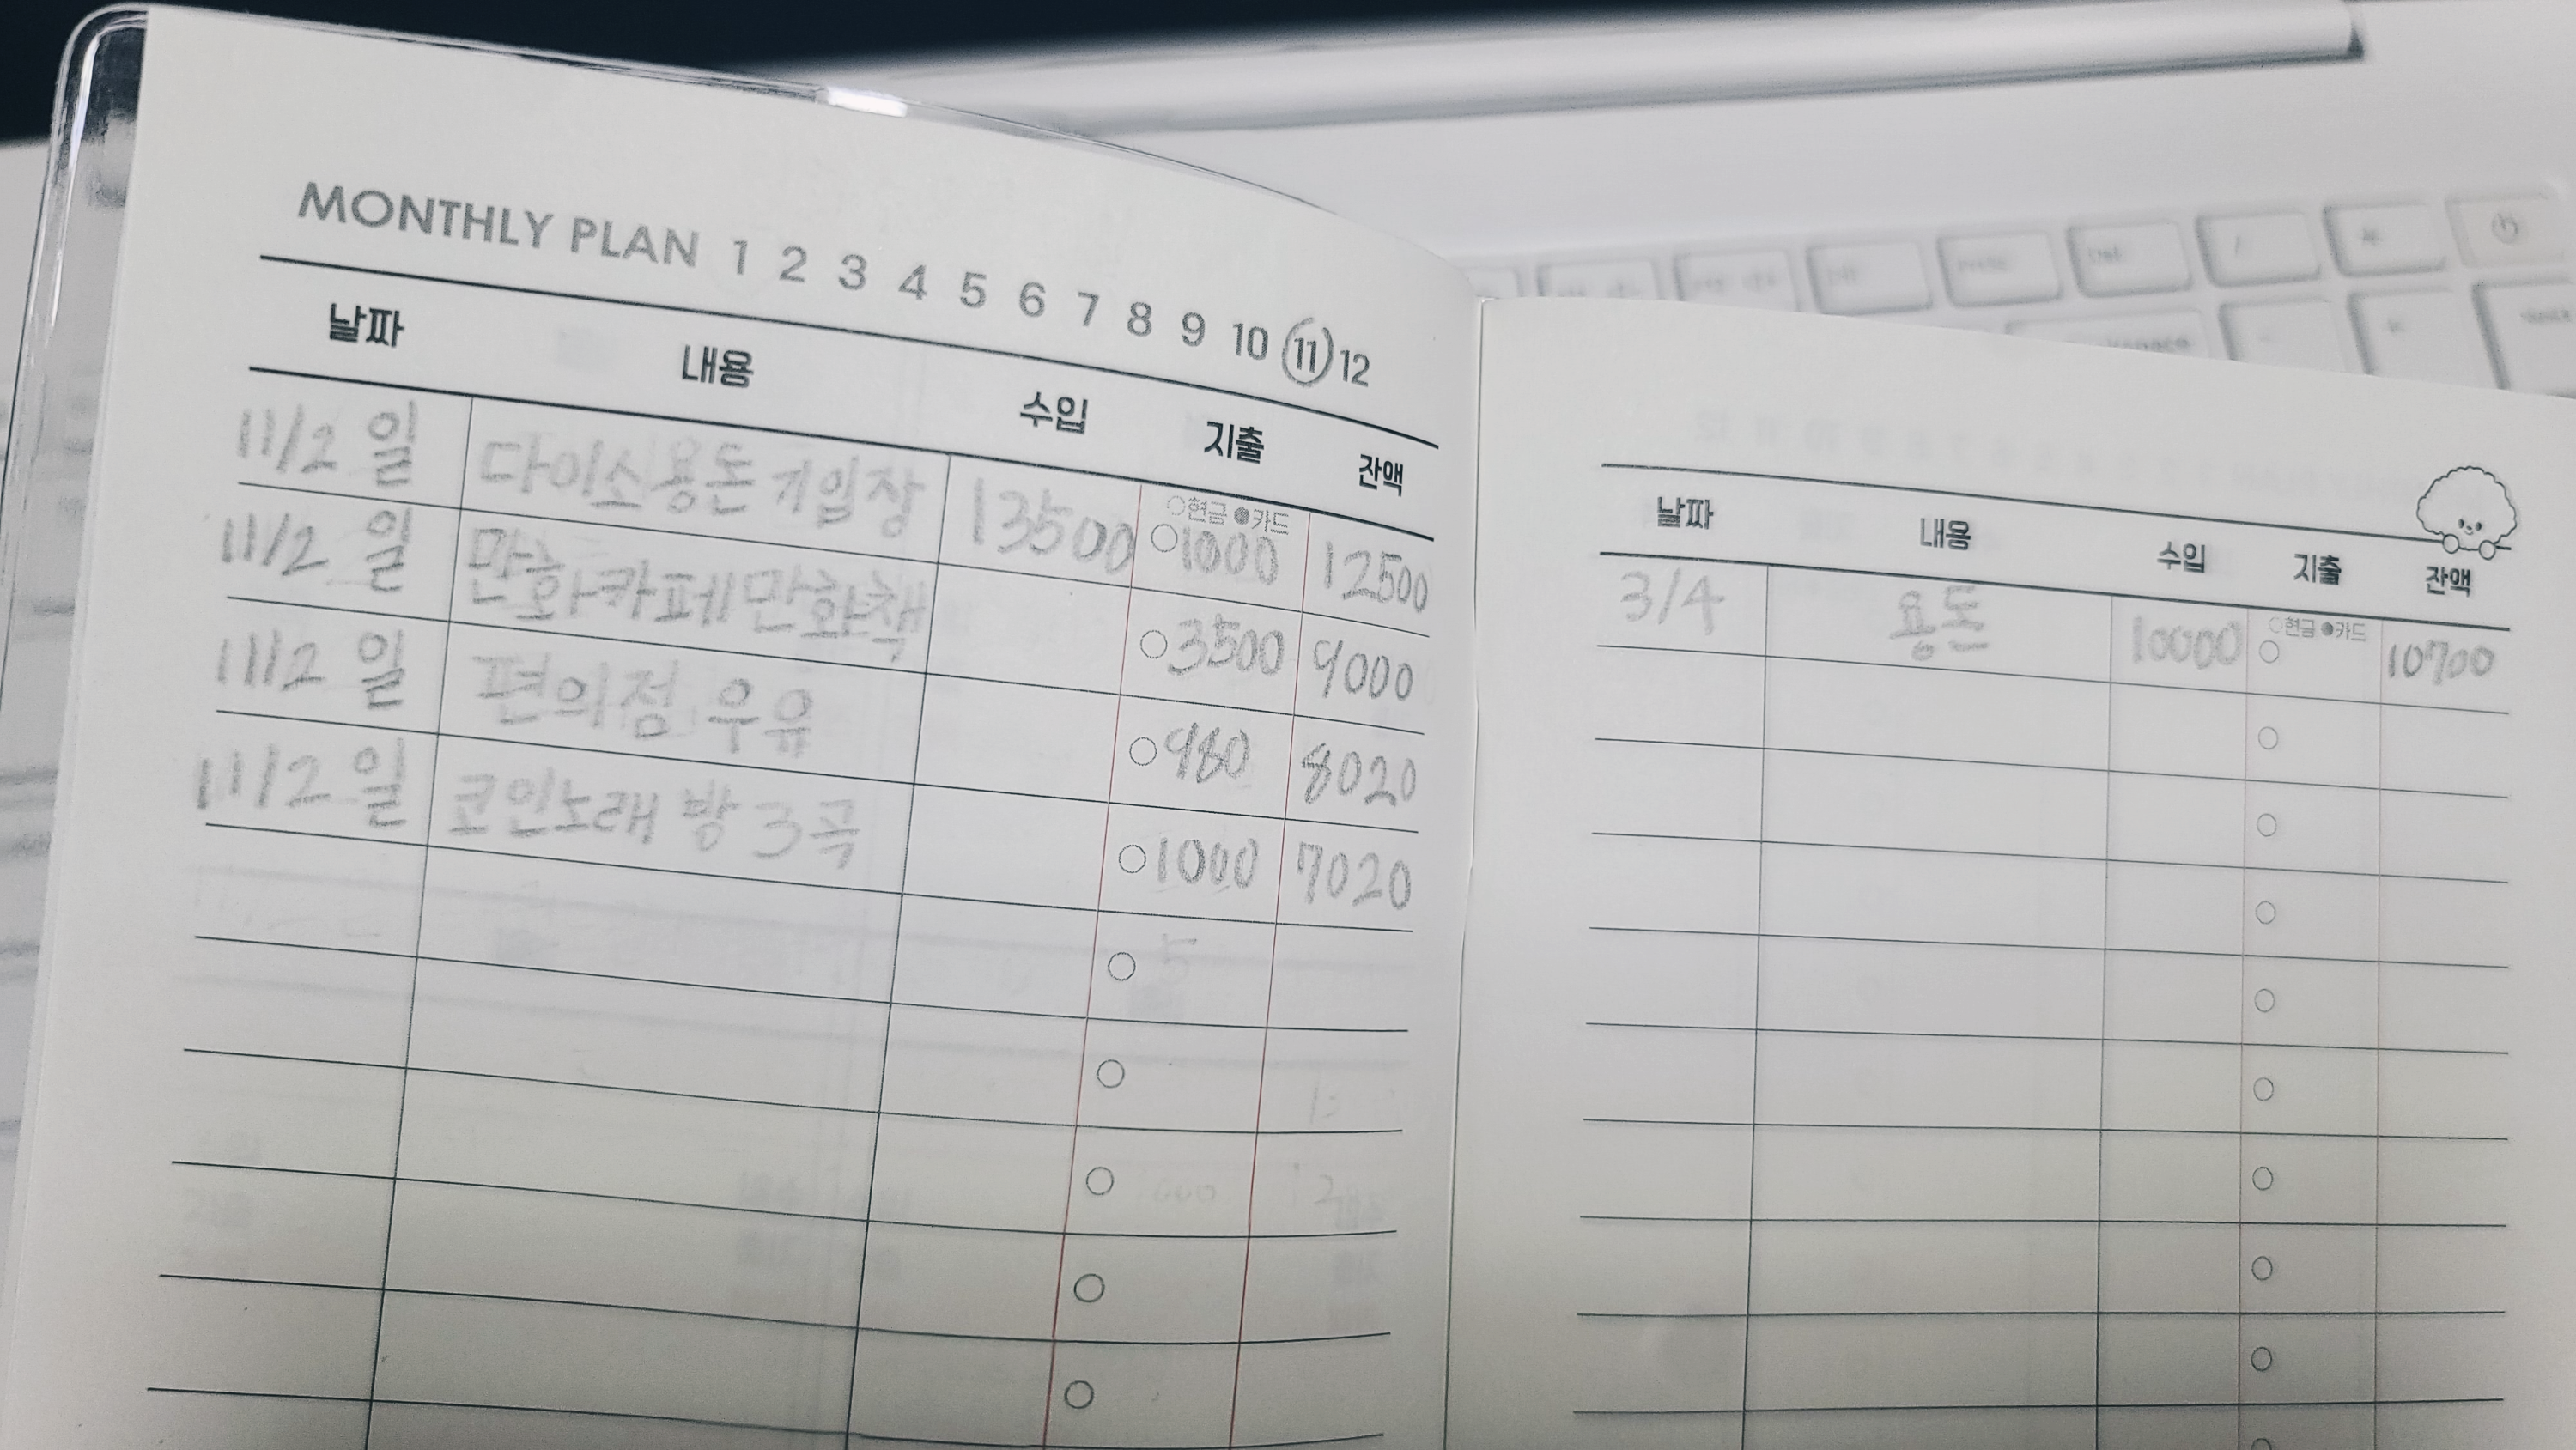 MONTHLY PLAN 1 2 3 4 5 6 7 8 9 10 11 12
날짜 내용 수입 지출 잔액
○현금 ●카드
11/2 일 다이소용돈기입장 13500 1000 12500
11/2 일 만화카페만화책 3500 9000
11/2 일 편의점 우유 980 8020
11/2 일 코인노래방 3곡 1000 7020
날짜 내용 수입 지출 잔액
○현금 ●카드
3/4 용돈 10000 10700